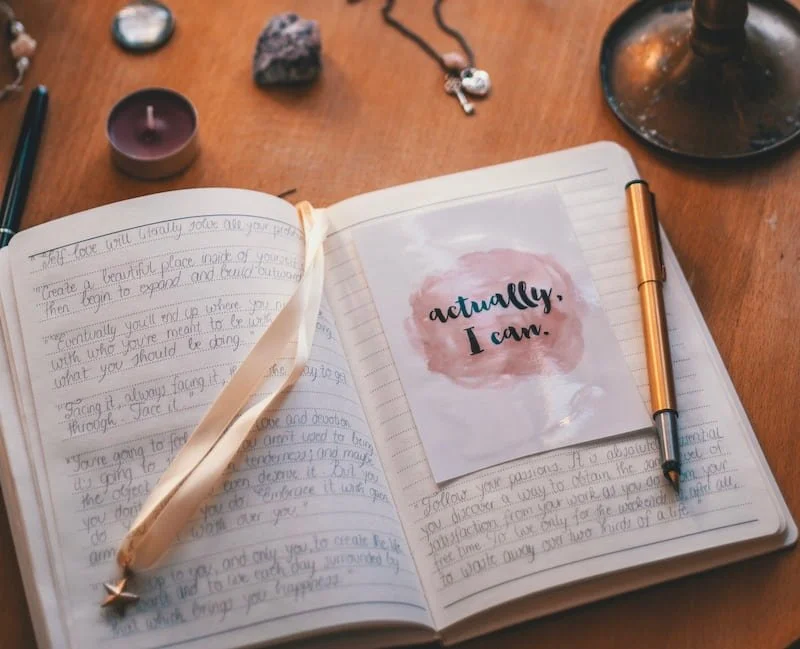 "Self love will literally solve all your
"Create a beautiful place inside of yourself
then begin to expand and build outward
"Eventually you'll end up where you
with who you're meant to be with
what you should be doing.
"Facing it, always facing it, the way to get
through. Face it."
"You're going to feel love and devotion
it's going to tenderness; and maybe
the object even deserve it. But you
you don't you do. Embrace it with open
arms worth over you."
up to you, and only you, to create the life
want and to live each day surrounded by
that which brings you happiness."
actually,
I can.
"Follow your passions. It is absolutely essential
you discover a way to obtain the same level of
satisfaction from your work as you do from your
free time. To live only for the weekend is, after all,
to waste away over two thirds of a life."